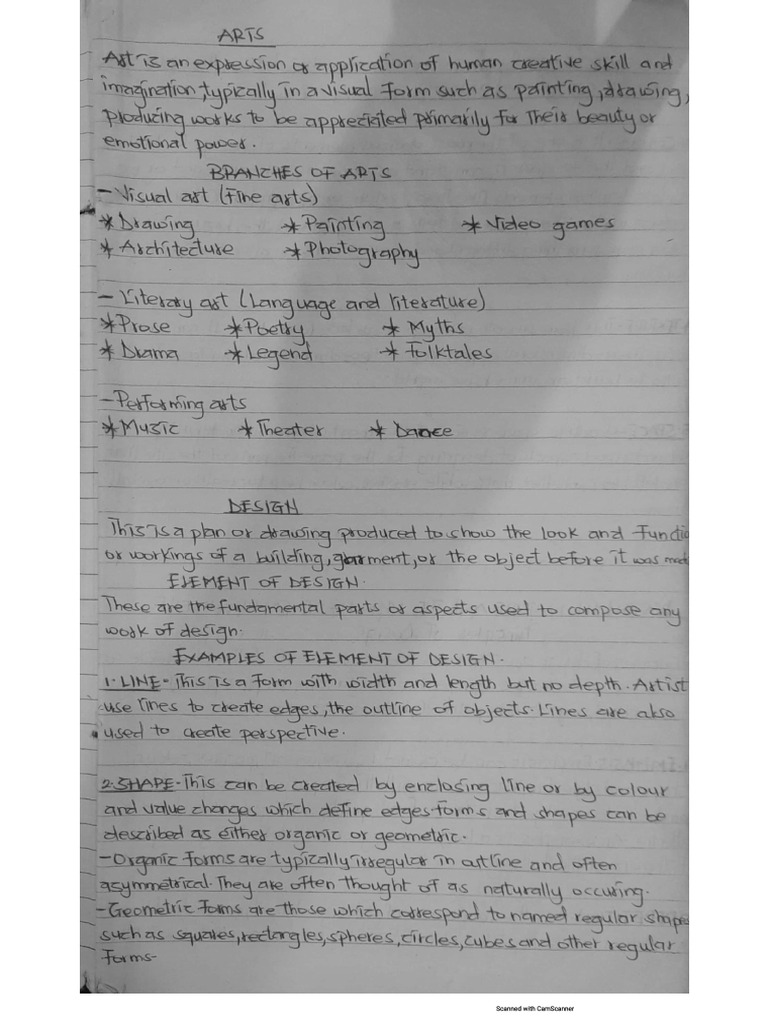 ARTS
Art is an expression or application of human creative skill and
imagination, typically in a visual form such as painting, drawing,
producing works to be appreciated primarily for their beauty or
emotional power.
BRANCHES OF ARTS
- Visual art (Fine arts)
* Drawing * Painting * Video games
* Architecture * Photography
- Literary art (Language and literature)
* Prose * Poetry * Myths
* Drama * Legend * Folktales
- Performing arts
* Music * Theater * Dance
DESIGN
This is a plan or drawing produced to show the look and functio
or workings of a building, garment, or the object before it was mad
ELEMENT OF DESIGN.
These are the fundamental parts or aspects used to compose any
work of design.
EXAMPLES OF ELEMENT OF DESIGN.
1. LINE - This is a form with width and length but no depth. Artist
use lines to create edges, the outline of objects. Lines are also
used to create perspective.
2. SHAPE - This can be created by enclosing line or by colour
and value changes which define edges. forms and shapes can be
described as either organic or geometric.
- Organic forms are typically irregular in outline and often
asymmetrical. They are often thought of as naturally occuring.
- Geometric forms are those which correspond to named regular shape
such as squares, rectangles, spheres, circles, cubes and other regular
forms-
Scanned with CamScanner